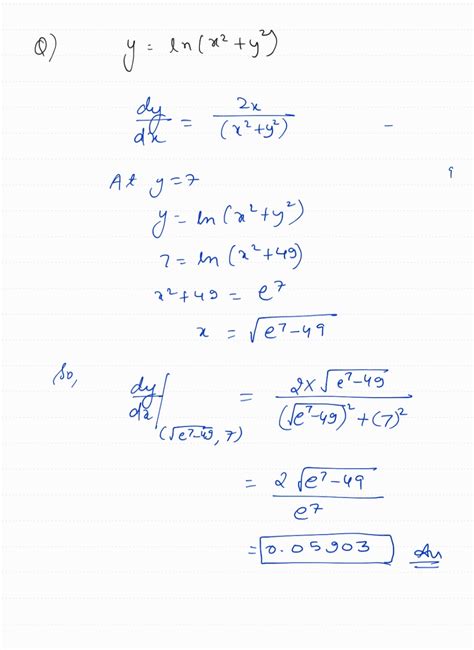 Q) y = ln(x²+y²)
dy/dx = 2x/(x²+y²) -
At y=7
y = ln(x²+y²)
7 = ln(x²+49)
x²+49 = e⁷
x = √(e⁷-49)
So, dy/dx|(√e⁷-49, 7) = 2×√(e⁷-49)/((√e⁷-49)²+(7)²)
= 2√(e⁷-49)/e⁷
= 0.05903 An